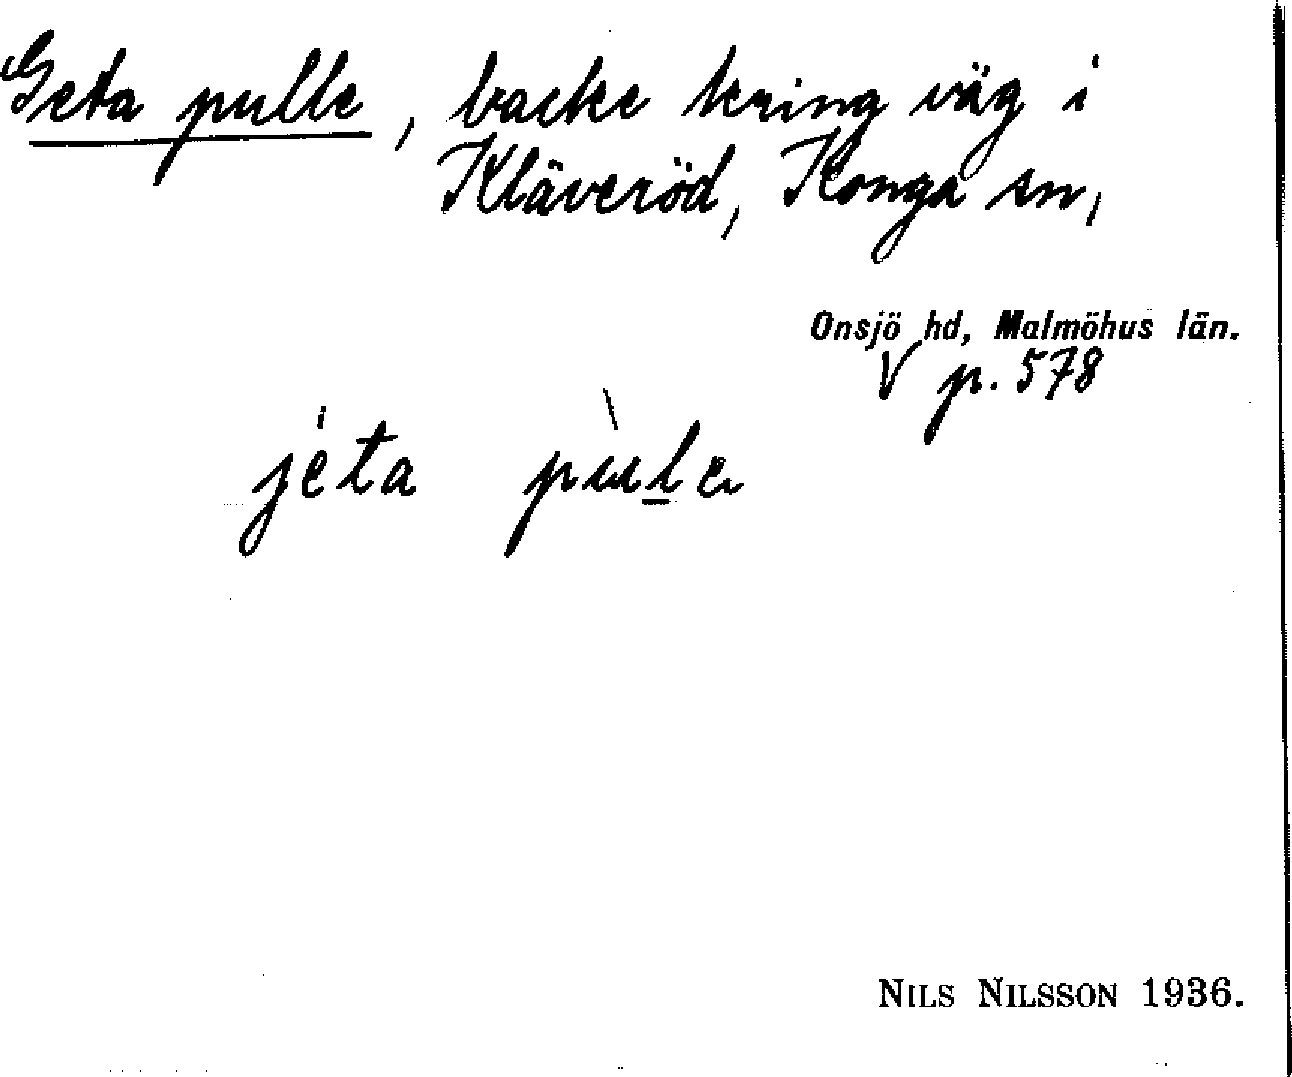 Geta pulle, backe kring väg i
Kläveröd, Konga sn,
Onsjö hd, Malmöhus län.
V p. 578
jéta pùle
NILS NILSSON 1936.